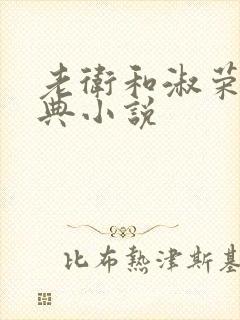 老衛和淑荣
典小説
比布熱津斯基